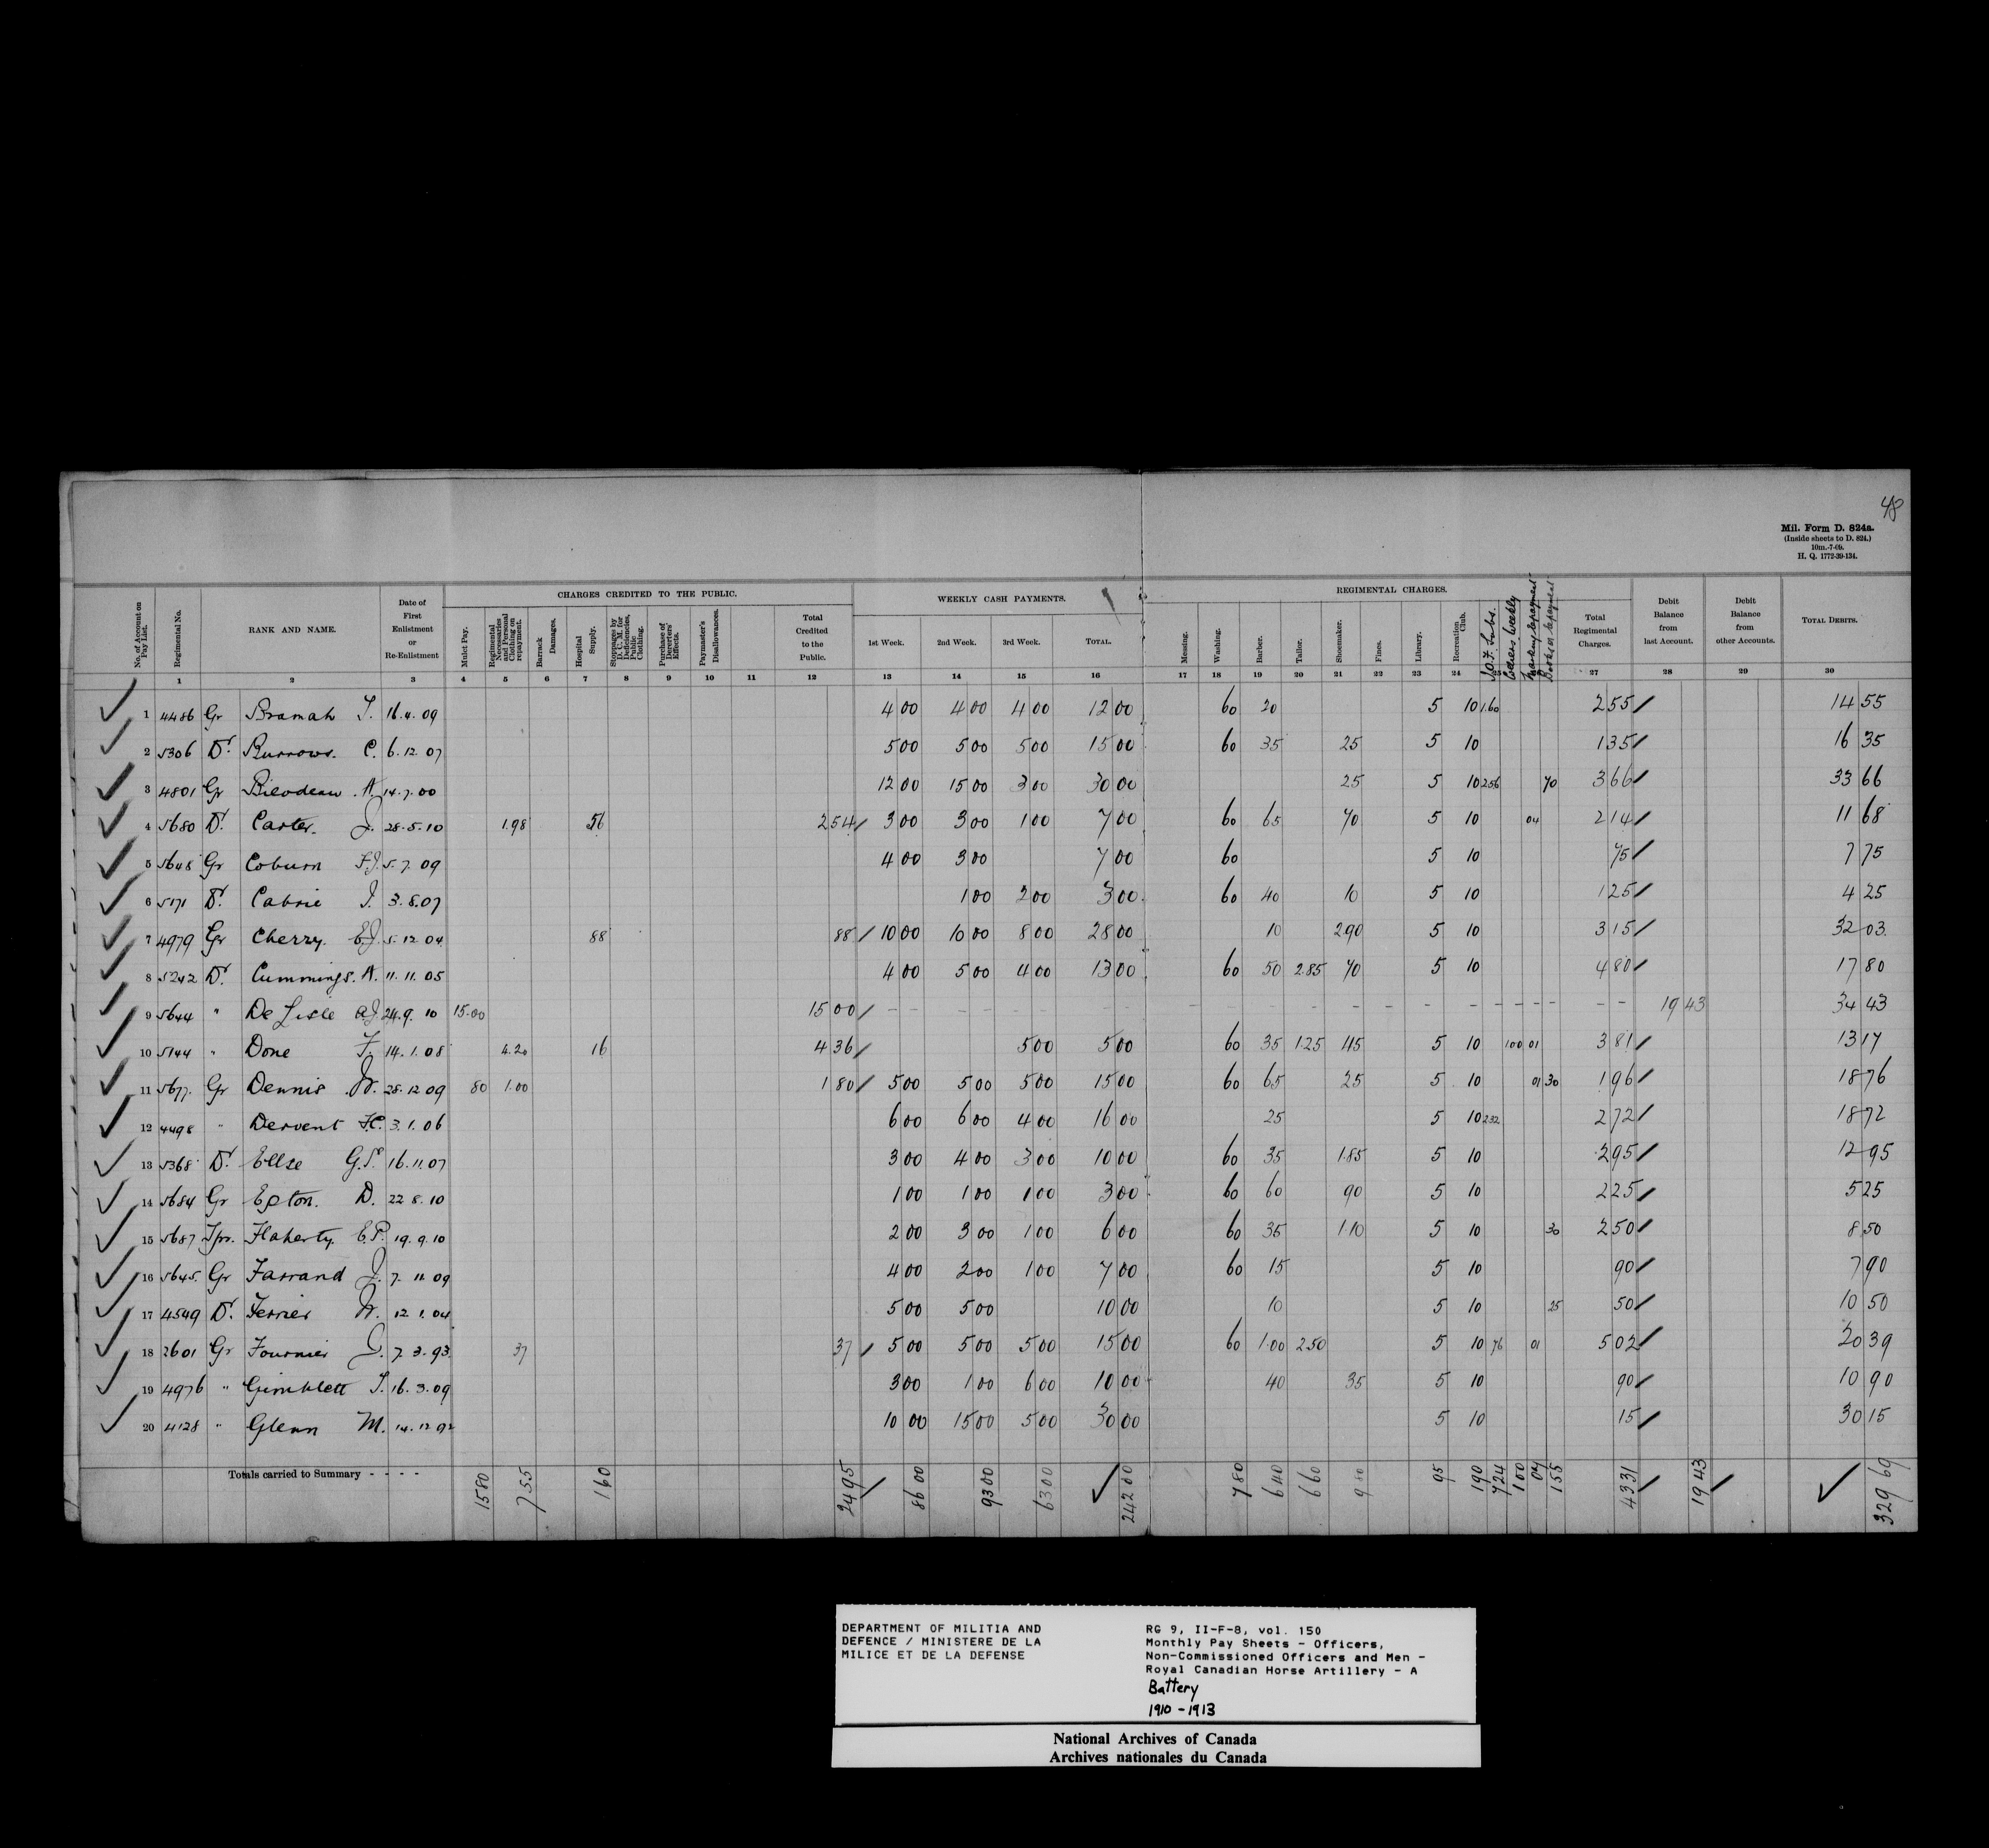 48
Mil. Form D. 824a.
(Inside sheets to D. 824.)
10m.-7-09.
H. Q. 1772-39-134.
No. of Account on Pay List. | Regimental No. | RANK AND NAME. | Date of First Enlistment or Re-Enlistment | CHARGES CREDITED TO THE PUBLIC. | WEEKLY CASH PAYMENTS. | REGIMENTAL CHARGES. | Debit Balance from last Account. | Debit Balance from other Accounts. | TOTAL DEBITS.
Mulct Pay. | Regimental Necessaries and Personal Clothing on repayment. | Barrack Damages. | Hospital Supply. | Stoppages by D. C. M. for Deficiencies, Public Clothing. | Purchase of Deserters' Effects. | Paymaster's Disallowances. | Total Credited to the Public. | 1st Week. | 2nd Week. | 3rd Week. | TOTAL. | Messing. | Washing. | Barber. | Tailor. | Shoemaker. | Fines. | Library. | Recreation Club. | I.O.F. Subs. | weekly | repayment | Books on repayment | Total Regimental Charges.
1 2 3 4 5 6 7 8 9 10 11 12 13 14 15 16 17 18 19 20 21 22 23 24 25 27 28 29 30
1 4486 Gr Bramah T. 16.4.09 4 00 4 00 4 00 12 00 60 20 5 10 1.60 2 55 14 55
2 5306 Dr. Burrows. C. 6.12.07 5 00 5 00 5 00 15 00 60 35 25 5 10 1 35 16 35
3 4801 Gr Bilodeau A. 14.7.00 12 00 15 00 3 00 30 00 25 5 10 2.56 70 3 66 33 66
4 5680 Dr. Carter. J. 28.5.10 1.98 56 2 54 3 00 3 00 1 00 7 00 60 65 70 5 10 04 2 14 11 68
5 5648 Gr Coburn F.J. 5.7.09 4 00 3 00 7 00 60 5 10 75 7 75
6 5171 Dr. Cabrie J. 3.8.07 1 00 2 00 3 00 60 40 10 5 10 1 25 4 25
7 4979 Gr Cherry. E.J. 5.12.04 88 88 10 00 10 00 8 00 28 00 10 2 90 5 10 3 15 32 03
8 5242 Dr. Cummings. A. 11.11.05 4 00 5 00 4 00 13 00 60 50 2.85 70 5 10 4 80 17 80
9 5644 " De Lisle A.J. 24.9.10 15.00 15 00 – – – – – – – – – – – – 19 43 34 43
10 5144 " Done F. 14.1.08 4.20 16 4 36 5 00 5 00 60 35 1.25 45 5 10 1 00 01 3 81 13 17
11 5677. Gr Dennis W. 28.12.09 80 1.00 1 80 5 00 5 00 5 00 15 00 60 65 25 5 10 01 30 1 96 18 76
12 4498 " Dervent F.C. 3.1.06 6 00 6 00 4 00 16 00 25 5 10 2.32 2 72 18 72
13 5368 Dr. Ellse G.S. 16.11.07 3 00 4 00 3 00 10 00 60 35 1.85 5 10 2 95 12 95
14 5684 Gr Epton. D. 22.8.10 1 00 1 00 1 00 3 00 60 60 90 5 10 2 25 5 25
15 5687 Tpr. Flaherty. E.P. 19.9.10 2 00 3 00 1 00 6 00 60 35 1 10 5 10 30 2 50 8 50
16 5645. Gr Farrand J. 7.11.09 4 00 2 00 1 00 7 00 60 15 5 10 90 7 90
17 4549 Dr. Ferrier W. 12.1.04 5 00 5 00 10 00 10 5 10 25 50 10 50
18 2601 Gr Fournier J. 7.3.93 37 37 5 00 5 00 5 00 15 00 60 1.00 2.50 5 10 76 01 5 02 20 39
19 4976 " Gimblett T. 16.3.09 3 00 1 00 6 00 10 00 40 35 5 10 90 10 90
20 4128 " Glenn M. 14.12.92 10 00 15 00 5 00 30 00 5 10 15 30 15
Totals carried to Summary - - - - 15 80 7 55 1 60 24 95 86 00 93 00 63 00 242 00 7 80 6 40 6 60 9 80 95 1 90 7 24 1 00 07 1 55 43 31 19 43 329 69
DEPARTMENT OF MILITIA AND
DEFENCE / MINISTERE DE LA
MILICE ET DE LA DEFENSE
RG 9, II-F-8, vol. 150
Monthly Pay Sheets - Officers,
Non-Commissioned Officers and Men -
Royal Canadian Horse Artillery - A
Battery
1910 - 1913
National Archives of Canada
Archives nationales du Canada